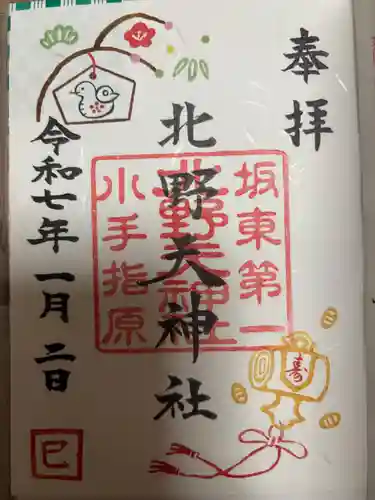 奉拝
坂東第一
北野天神社
小手指原
北野天神社
令和七年一月二日
寿
巳